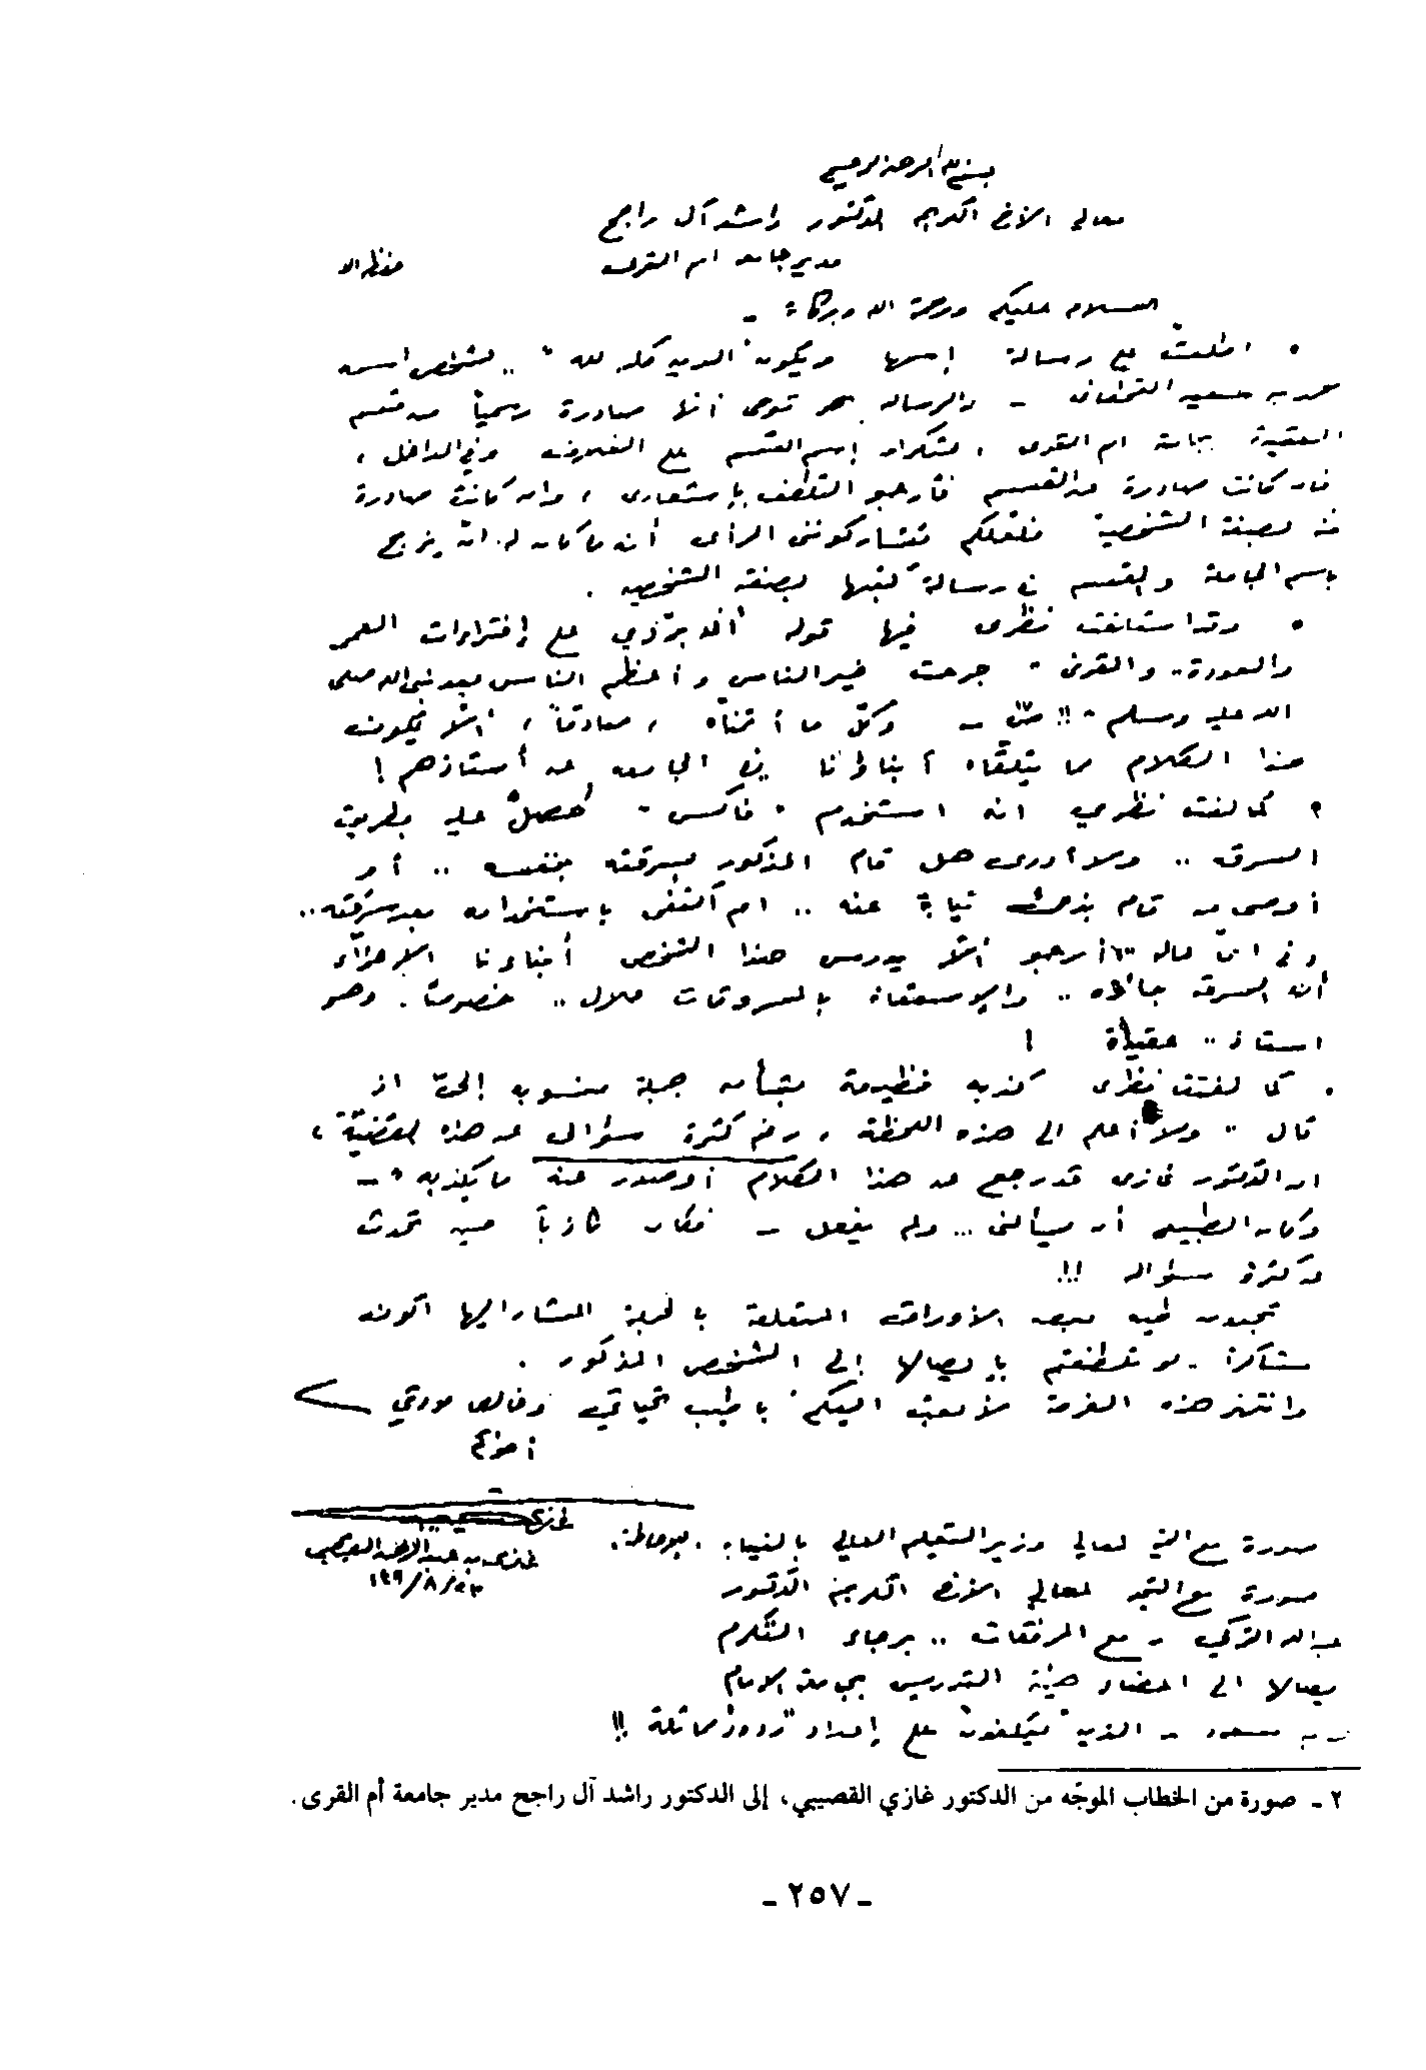 بسم الله الرحمن الرحيم
معالي الأخ الكريم الدكتور راشد آل راجح
مدير جامعة ام القرى حفظه الله
السلام عليكم ورحمة الله وبركاته -
• اطلعت على رسالة إسمها "ويكون الدين كله لله" .. لشخص اسمه
سعيد القحطاني - والرسالة توحي أنها صادرة رسمياً من قسم
العقيدة بجامعة ام القرى ، بتكرار إسم القسم على الغلاف وفي الداخل ،
فان كانت صادرة عن القسم فأرجو التلطف بإشعاري ، وان كانت صادرة
عنه بصفته الشخصية فلعلكم تشاركونني الرأى أنه ما كان له أن يزج
باسم الجامعة والقسم في رسالة كتبها بصفته الشخصيه .
• وقد استلفت نظرى فيها قوله على إفتراءات
جرحت خير الناس وأعظم الناس بعد نبي الله صلى
الله عليه وسلم" !! - وكل ما أتمناه ، صادقاً ، ألا يكون
هذا الكلام مما يتلقاه أبناؤنا في الجامعه عن أستاذهم !
• كما لفت نظري انه استخدم "فاكس" حصل عليه بطريق
السرقه .. ولا أدرى هل قام المذكور بسرقته بنفسه .. أو
أوصى من قام بذلك نيابة عنه .. ام اكتفى باستخدامه بعد سرقته ..
وفي اي حال أرجو ألا يدرس هذا الشخص أبناءنا الأعزاء
أن السرقه جائزه .. والإستعانه بالمسروقات حلال .. خصوصاً . وهو
استاذ .. عقيدة !
• كما لفتت نظرى كذبه فظيعة جملة منسوبه إليّ اذ
قال " ولا أعلم الى هذه اللحظة ، رغم كثرة سؤالي عن هذه القضيّة" ،
ان الدكتور غازى قد رجع عن هذا الكلام أو صدر عنه ما يكذبه" -
وكان الطبيعي أن يسألني ... ولم يفعل - فكان كاذباً حين تحدث
عن كثرة سؤاله !!!
تجدون طيه بعض الأوراق المتعلقة بالحملة المشار اليها اكون
شاكراً - لو تلطفتم بإيصالها إلى الشخص المذكور .
وانتهز هذه الفرصة لأبعث اليكم باطيب تحياتي وخالص مودتي
أخوكم
غازى بن عبد الرحمن القصيبي
صورة مع التحية لمعالي وزير التعليم العالي بالنيابه ،
صورة مع التحية لمعالي الأخ الكريم الدكتور
عبد الله التركي - مع المرفقات .. برجاء التكرم
بايصالها الى اعضاء هيئة التدريس بجامعة الامام
بن سعود - الذين يتكلفون على إعداد "ردود" مماثلة !!
٢ - صورة من الخطاب الموجّه من الدكتور غازي القصيبي، إلى الدكتور راشد آل راجح مدير جامعة أم القرى.
- ٢٥٧ -